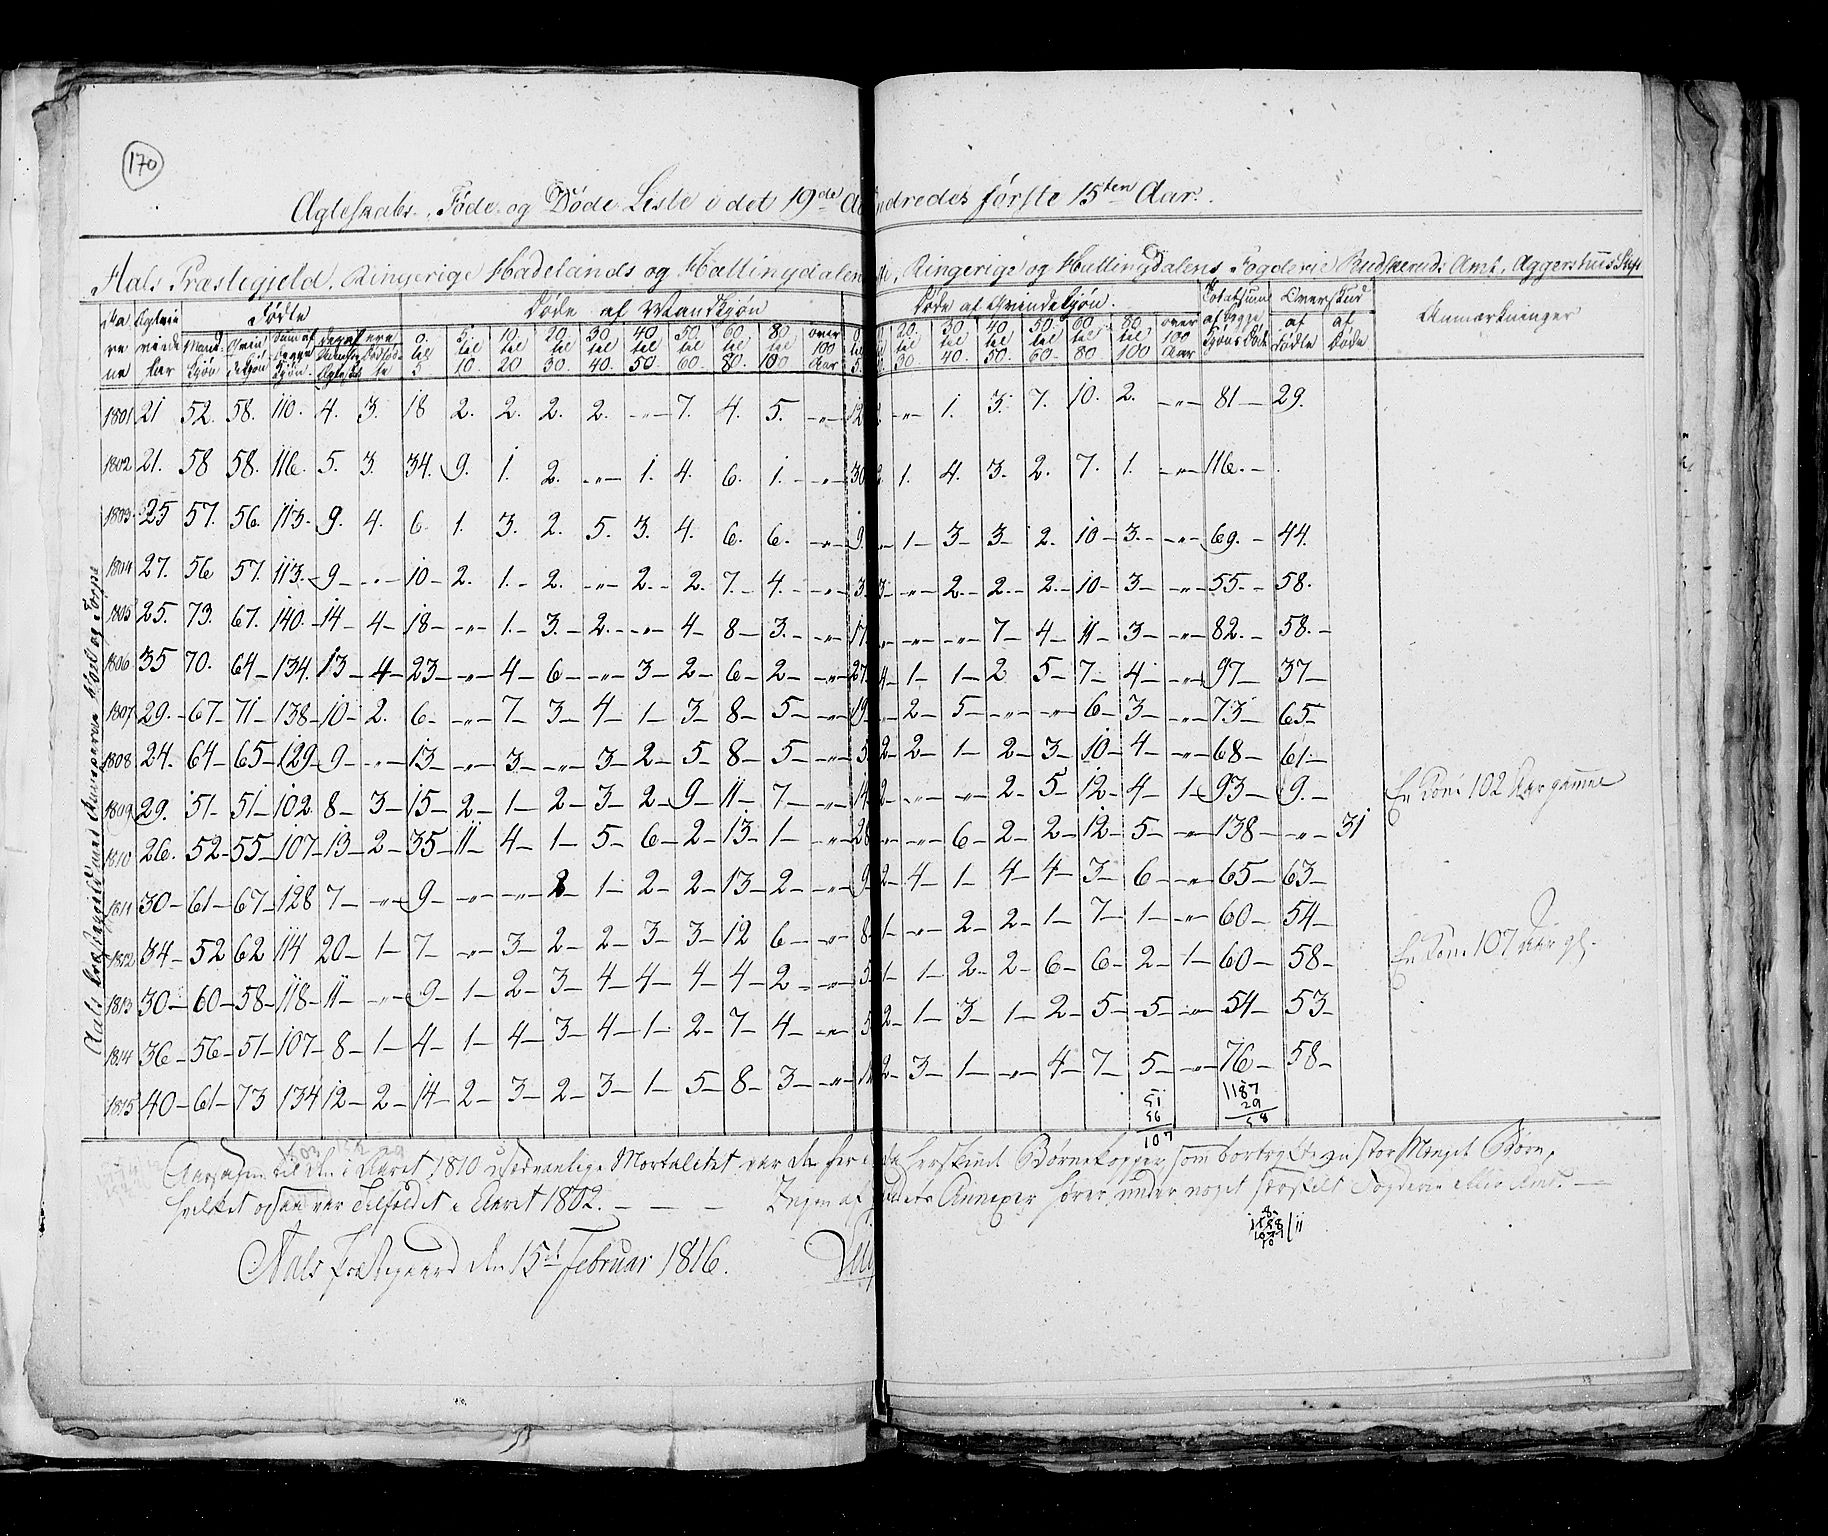 170
Ægteskabs-, Føde- og Døde Liste i det 19de ndredes første 15ten Aar.
Aals Præstegjeld, Ringerige Hadelands og Hallingdalens Ringerige og Hallingdalens Fogderie Buskeruds Amt, Aggershuus Stift
Aarene Ægteviede Par Fødte Døde af Mandkjøn Døde af Qvindekjøn. Totalsum af begge Kjøns Døde Overskud Anmærkninger
Mandkjøn Qvindekjøn Sum af begge Kjøn. deraf ere 0 til 5 5 til 10. 10 til 20 20 til 30. 30 til 40. 40 til 50. 50 til 60 60 til 80. 80 til 100 over 100 Aar 20. til 30 30 til 40. 40 til 50. 50. til 60 60 til 80 80 til 100 over 100 Aar af Fødte af Døde
1801 21 52. 58. 110. 4. 3. 18 2. 2. 2. 2. -"- 7. 4. 5. -"- 12 2. -"- 1. 3. 7. 10. 2. -"- 81 29.
1802 21. 58 58. 116. 5. 3. 34. 9. 1. 2. -"- 1. 4. 6. 1. -"- 30 2. 1. 4. 3. 2. 7. 1. -"- 116. -
1803 25 57. 56. 113. 9. 4. 6. 1. 3. 2. 5. 3. 4. 6. 6. -"- 9. -"- 1 3 3 2. 10 3. -"- 69. 44.
1804 27. 56 57. 113. 9 -"- 10 2. 1 2. -"- 2. 2. 7. 4. -"- 3 3 -"- 2. 2. 2 10 3 -"- 55. 58.
1805 25. 73. 67. 140. 14 4 18 -"- 1. 3. 2. -"- 4 8 3. -"- 17 -"- -"- -"- 7 4 11 3 -"- 82. 58.
1806 35 70. 64 134. 13 4 23 -"- 4 6 -"- 3 2 6 2 -"- 27 4 1 1 2 5 7 4 -"- 97 37
1807 29. 67 71 138 10 2. 6 -"- 7 3 4 1 3 8 5 -"- 19 -"- 2 5 -"- -"- 6 3 -"- 73 65
1808 24. 64 65 129 9 -"- 13 -"- 3 -"- 3 2 5 8 5 -"- 5 2 2 1 2 3 10 4 -"- 68 61
1809 29. 51 51 102 8 3 15 2 1 2 3 2 9 11 7 -"- 14 2 -"- -"- 2 5 12 4 1 93 9. En Kone 102 Aar gammel
1810 26. 52 55 107 13 2 35 11 4 1 5 6 2 13 1 -"- 28 -"- -"- 6 2 2 12 5 -"- 138 -"- 31
1811 30 61 67 128 7 -"- 9 -"- -"- 2 1 2 2 13 2 -"- 9 2 4 1 4 4 3 6 -"- 65 63
1812 34 52 62 114 20 1 7 -"- 3 2 2 3 3 12 6 -"- 8 1 -"- 2 2 1 7 1 -"- 60 54
1813 30 60 58 118 11 -"- 9 1 2 3 4 4 4 4 2 -"- 5 1 1 2 2 6 6 2 1 60 58 En Kone 107 Aar gl.
1814 36 56 51 107 8 1 4 1 4 3 4 1 2 7 4 -"- 5 2 1 3 1 2 5 5 -"- 54 53
1815 40 61 73 134 12 2 14 2 3 2 3 1 5 8 3 -"- 2 3 1 -"- 4 7 5 -"- 76 58
51 1187
56 29
107 58
Aals Præstegjeld med Annexerne Hol og Torpe
Aarsagen til den i Aaret 1810 usædvanlige Mortalitet var de her herskende Børnekopper, som bortrykte en stor Mængde Børn,
hvilket ogsaa var Tilfældet i Aaret 1802. Ingen af Annexer hører under noget særskilt Fogderie eller Amt.
Aals Præstegaard den 15de Februar 1816.